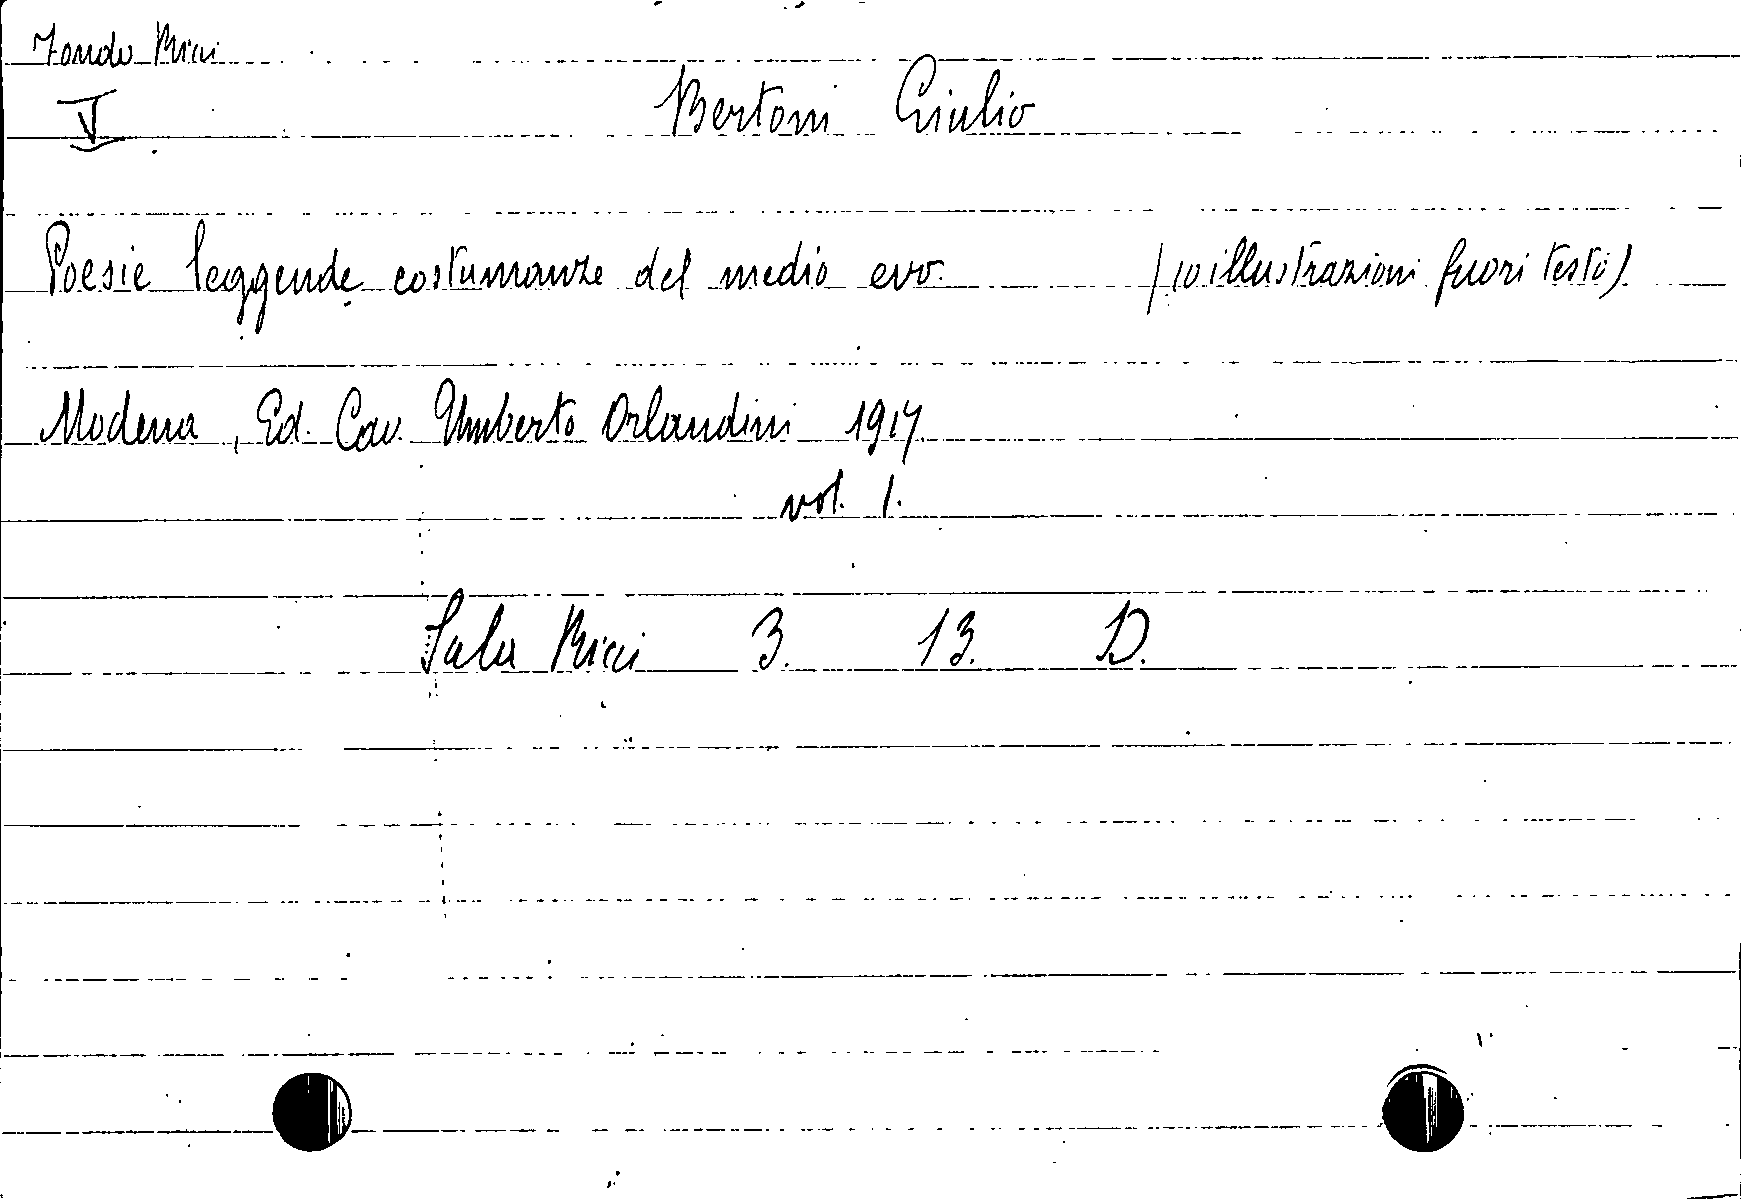 Fondo Ricci
V
Bertoni Giulio
Poesie leggende costumanze del medio evo. (10 illustrazioni fuori testo)
Modena, Ed. Cav. Umberto Orlandini 1917
vol. 1.
Sala Ricci 3. 13. D.